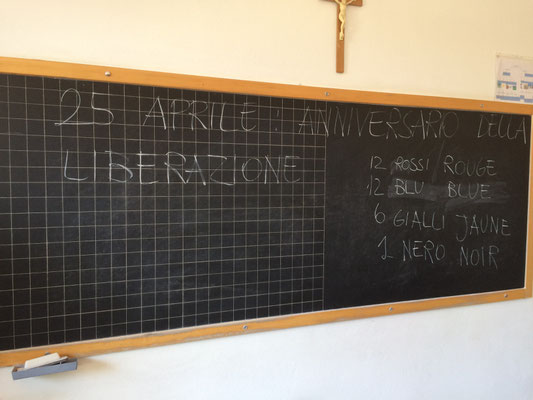 25 APRILE: ANNIVERSARIO DELLA
LIBERAZIONE
12 ROSSI ROUGE
12 BLU BLUE
6 GIALLI JAUNE
1 NERO NOIR